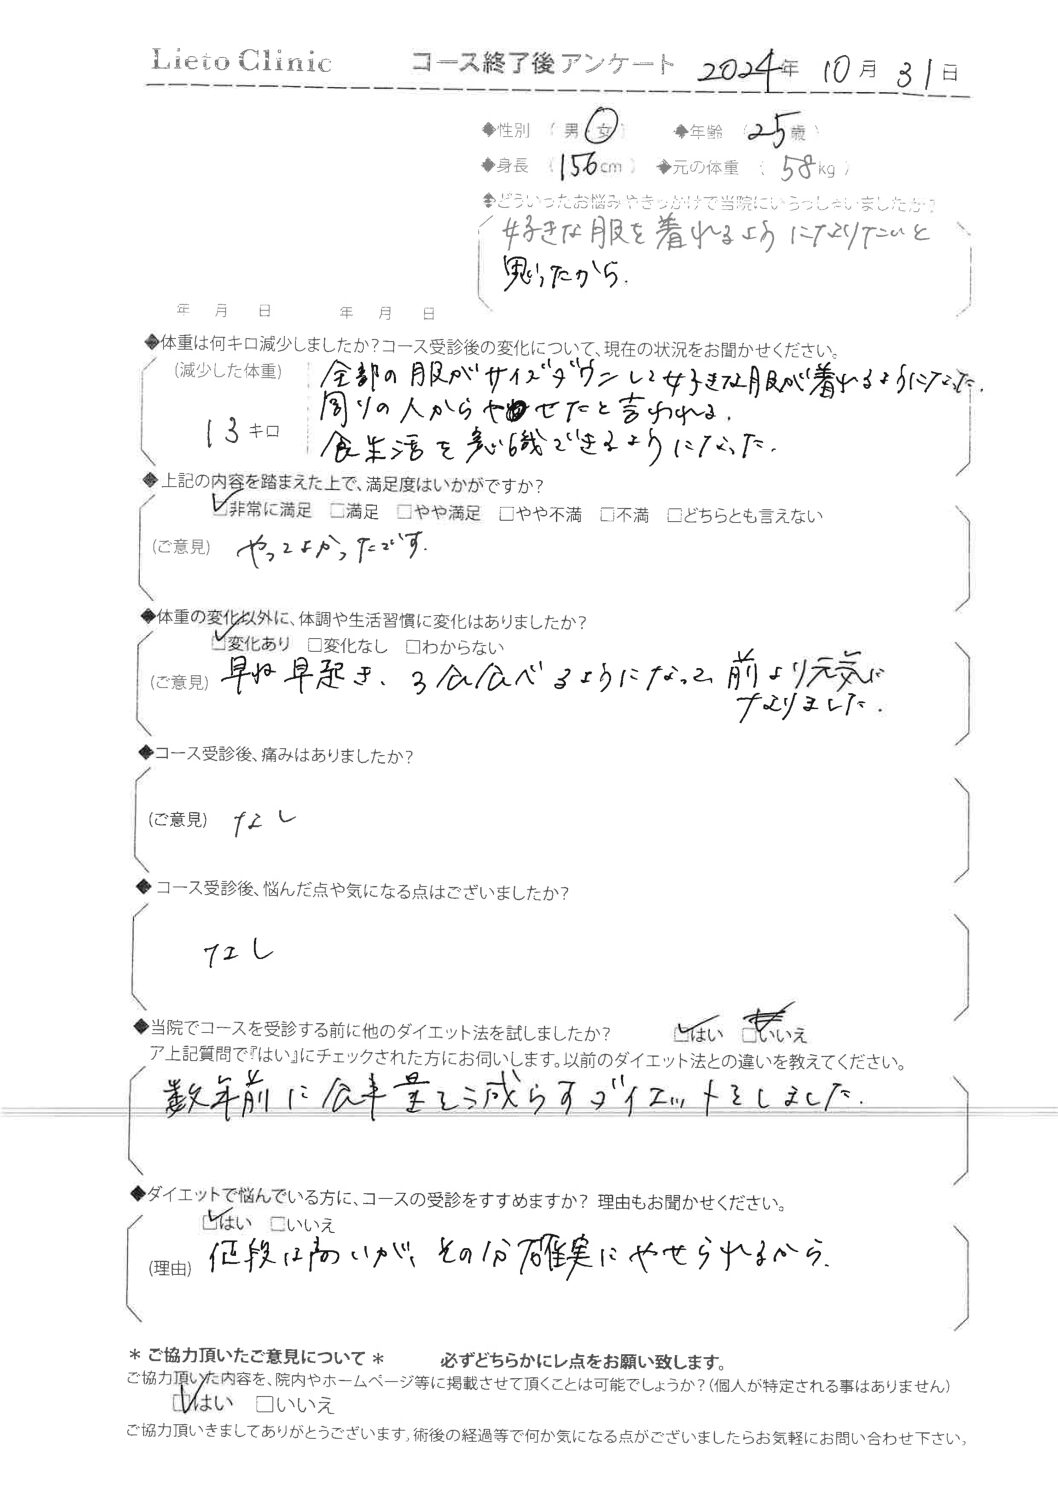 Lieto Clinic コース終了後アンケート 2024年 10月 31日
◆性別 ( 男・女 ) ◆年齢 ( 25歳 )
◆身長 ( 156cm ) ◆元の体重 ( 58kg )
◆どういったお悩みやきっかけで当院にいらっしゃいましたか?
好きな服を着れるようになりたいと
思ったから.
年 月 日 年 月 日
◆体重は何キロ減少しましたか?コース受診後の変化について、現在の状況をお聞かせください。
(減少した体重) 全部の服がサイズダウンして好きな服が着れるようになった.
周りの人からやせたと言われる.
13キロ
食生活を意識できるようになった.
◆上記の内容を踏まえた上で、満足度はいかがですか?
☑非常に満足 □満足 □やや満足 □やや不満 □不満 □どちらとも言えない
(ご意見) やってよかったです.
◆体重の変化以外に、体調や生活習慣に変化はありましたか?
☑変化あり □変化なし □わからない
(ご意見) 早ね早起き、3食食べるようになって、前より元気に
なりました.
◆コース受診後、痛みはありましたか?
(ご意見) なし
◆コース受診後、悩んだ点や気になる点はございましたか?
なし
◆当院でコースを受診する前に他のダイエット法を試しましたか? ☑はい □いいえ
ア上記質問で『はい』にチェックされた方にお伺いします。以前のダイエット法との違いを教えてください。
数年前に食事量を減らすダイエットをしました.
◆ダイエットで悩んでいる方に、コースの受診をすすめますか? 理由もお聞かせください。
☑はい □いいえ
(理由) 値段は高いが、その分確実にやせられるから.
＊ ご協力頂いたご意見について ＊ 必ずどちらかにレ点をお願い致します。
ご協力頂いた内容を、院内やホームページ等に掲載させて頂くことは可能でしょうか?(個人が特定される事はありません)
☑はい □いいえ
ご協力頂いきましてありがとうございます。術後の経過等で何か気になる点がございましたらお気軽にお問い合わせ下さい。